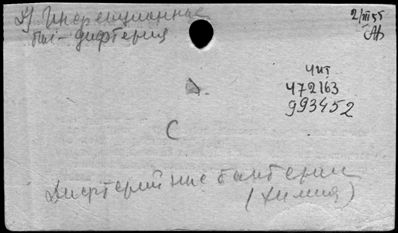 Инфекционные
бол - дифтерия
2/III 55
Чит
472163
993452
С
Дифтерийные бактерии
(химия)